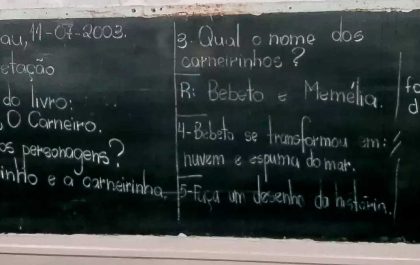 au, 11-07-2003.
etação
do livro:
O Carneiro.
os personagens?
inho e a carneirinha.
3-Qual o nome dos
carneirinhos?
R: Bebeto e Memélia.
4-Bebeto se transformou em:
nuvem e espuma do mar.
5-Faça um desenho da história.